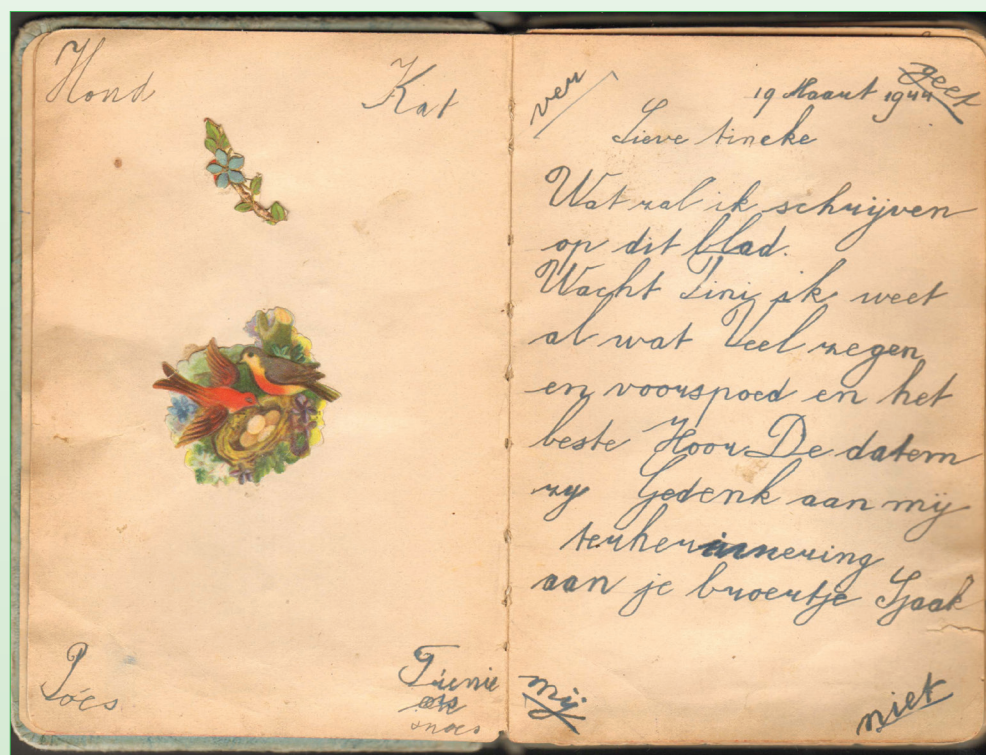 Hond
Kat
Poes
Tienie
snoes
ver
geet
19 Maart 1944
Lieve tineke
Wat zal ik schrijven
op dit blad.
Wacht Tini ik weet
al wat Veel zegen
en voorspoed en het
beste Hoor De datem
zy Gedenk aan mij
terherinnering
aan je broertje Sjaak
mij
niet